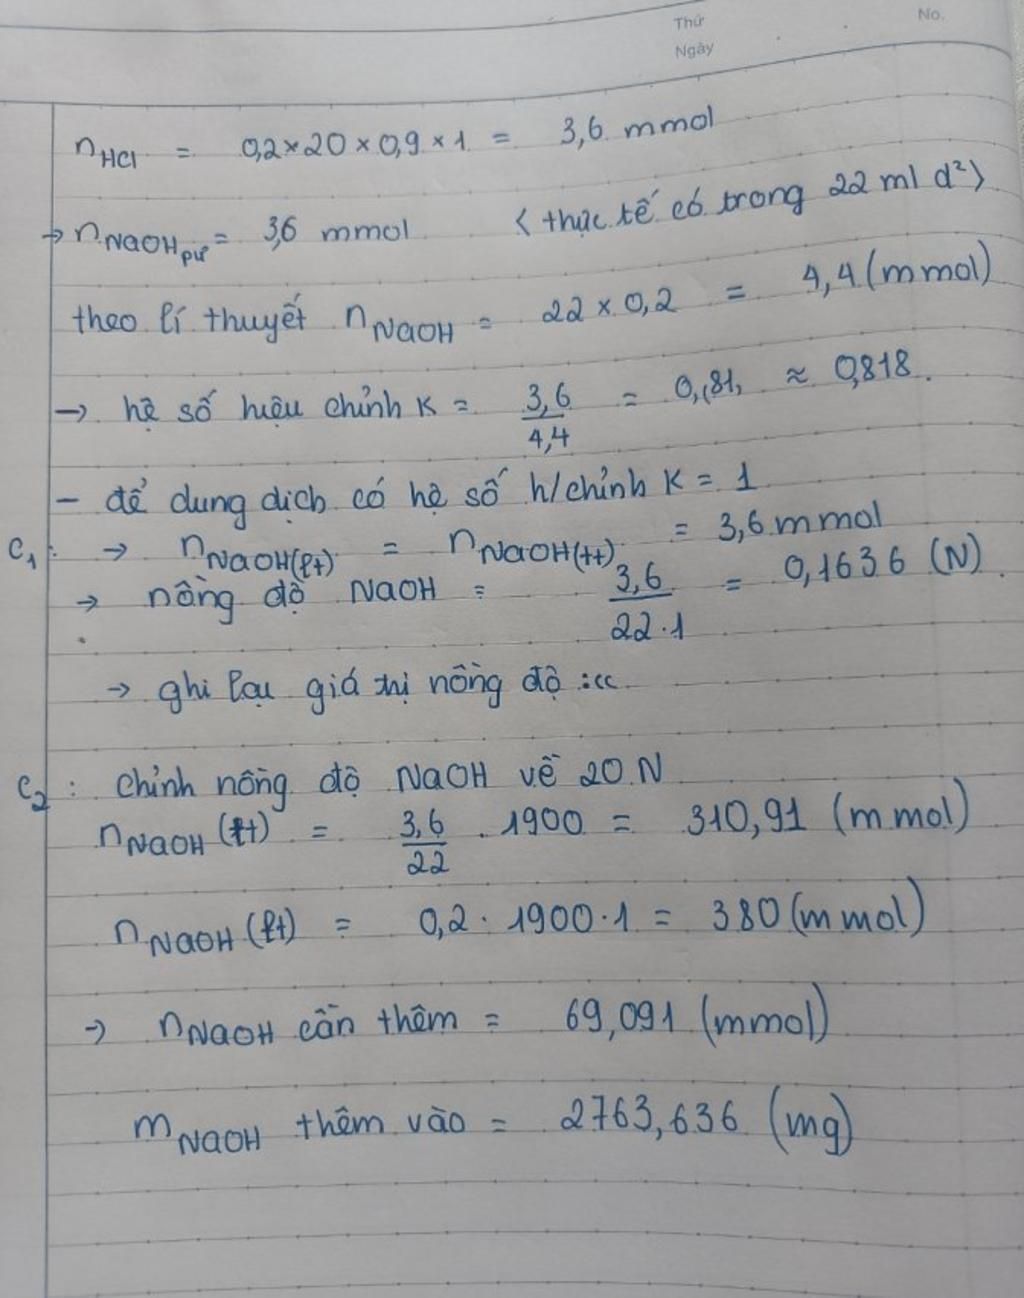 Thứ
No.
Ngày
nHCl = 0,2 × 20 × 0,9 × 1 = 3,6 mmol
→ nNaOH pư = 3,6 mmol < thực tế có trong 22 ml d²>
theo lí thuyết nNaOH = 22 × 0,2 = 4,4 (mmol)
→ hệ số hiệu chỉnh K = 3,6/4,4 = 0,81, ≈ 0,818.
- để dung dịch có hệ số h/chỉnh K = 1
C1: → nNaOH(lt) = nNaOH(tt) = 3,6 mmol
→ nồng độ NaOH = 3,6/22.1 = 0,1636 (N).
→ ghi lại giá trị nồng độ :cc
C2: chỉnh nồng độ NaOH về 20 N
nNaOH (tt) = 3,6/22 . 1900 = 310,91 (mmol)
nNaOH (lt) = 0,2 . 1900 . 1 = 380 (mmol)
→ nNaOH cần thêm = 69,091 (mmol)
mNaOH thêm vào = 2763,636 (mg)